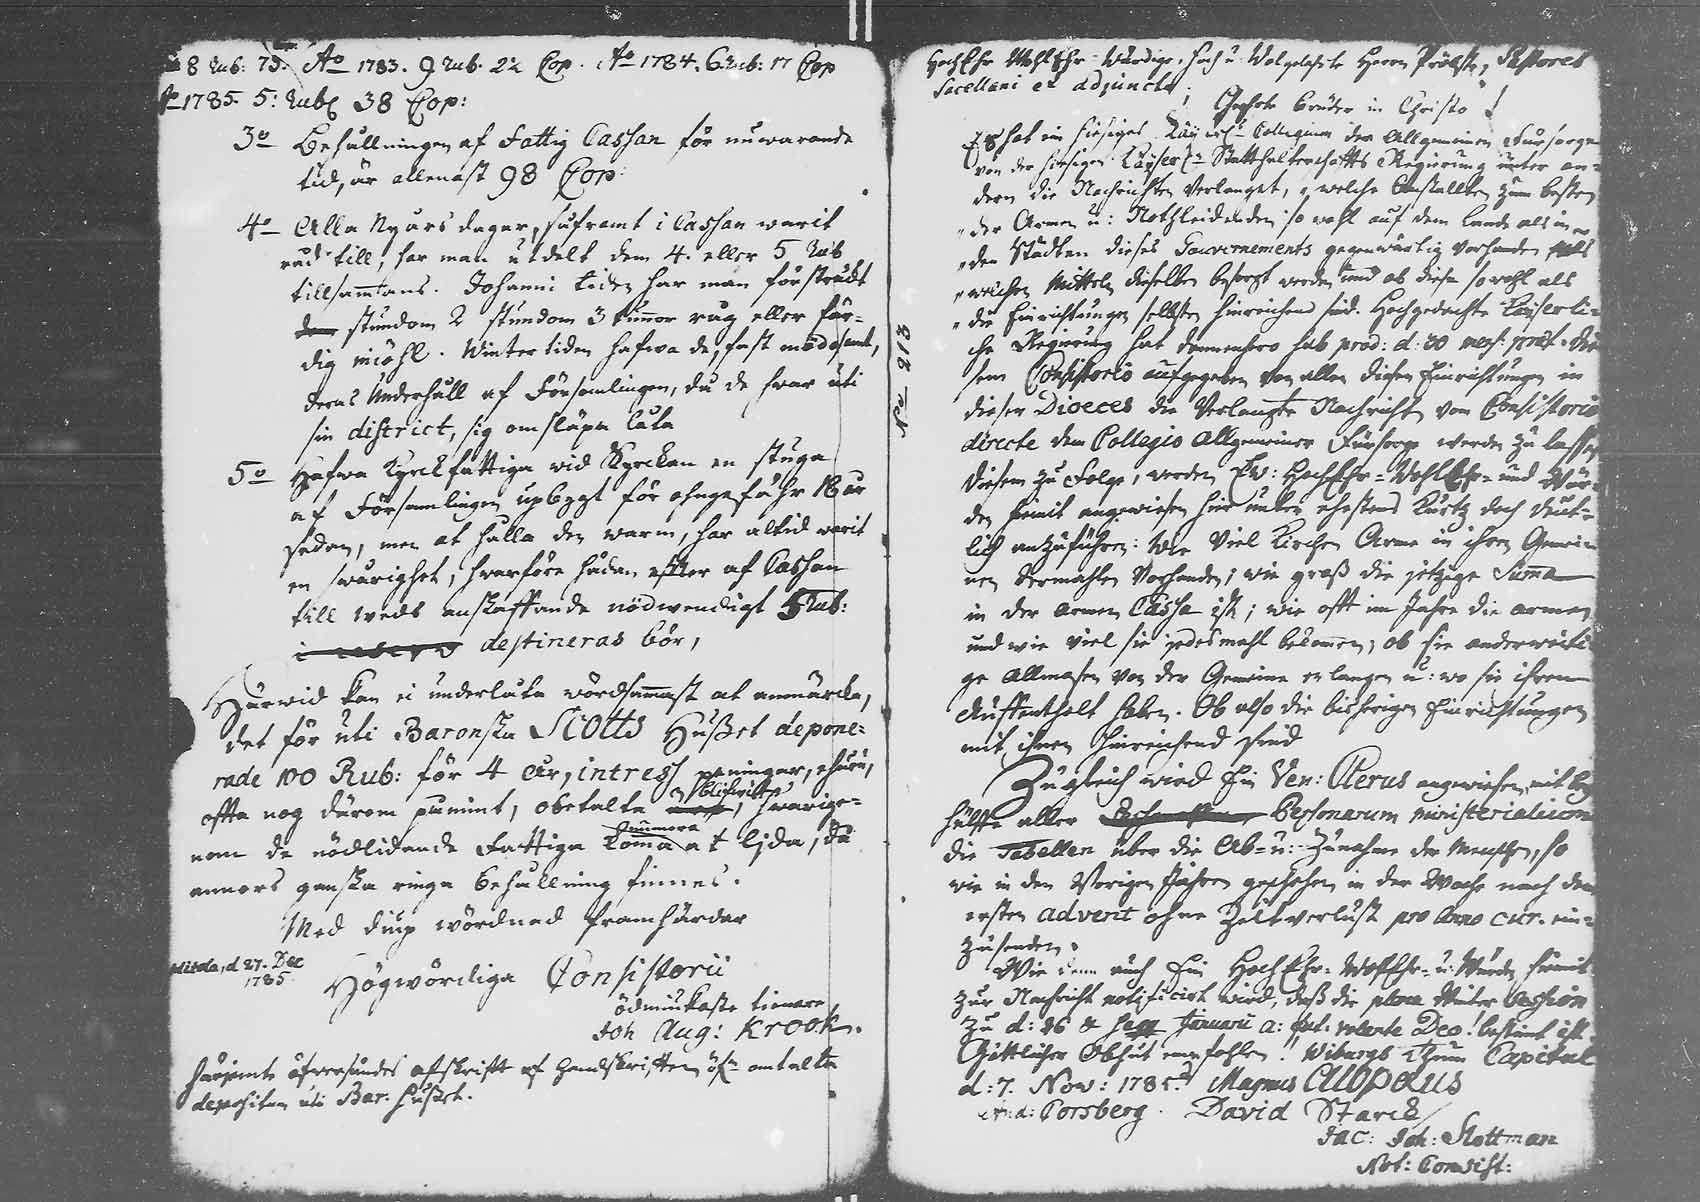 8 Rub: 75. Ao 1783. 9 Rub. 22 Cop. Ao 1784. 6 Rub: 17 Cop
Ao 1785. 5: Rub 38 Cop:
3o Behållningen af Fattig Cassan för nuwarande
tid, är allenast 98 Cop:
4o Alla Nyårs dagar, såframt i Cassan warit
råd till, har man utdelt dem 4. eller 5 Rub
tillsammans. Johanni tiden har man försträkt
dem stundom 2 stundom 3 tunnor råg eller fär-
dig miöhl. Wintertiden hafwa de, fast mödosamt,
deras Underhåll af Församlingen, då de hwar uti
sin district, sig omsläpa låta
5o Hafwa Kyrckfattiga wid Kyrckan en stuga
af Församlingen upbygt för ohngefähr 18 år
sedan, men at hålla den warm, har altid warit
en swårighet, hwarföre hädan efter af Cassan
till weds anskaffande nödwendigt 5 Rub:
destineras bör,
Härwid kan ei underlåta wördsammast at anmärcka,
det för uti Baronska Scotts Hußet depone-
rade 100 Rub: för 4 åhr, intress peningar, ehuru,
ofta nog därom påmint, obetalte blifwit, hwarige-
nom de nödlidande Fattiga komma at lida, då
annars ganska ringa behållning finnes.
Med diup wördnad framhärdar
d 27. Dec
1785.
Högwördiga Consistorii
ödmiukaste tienare
Joh Aug: Krook.
härjemte öfwersändes afskrift af handskriften öfr omtalte
depositen uti Bar: Hußet.
HochEhr WohlEhr-Würdige, Hoch u: Wolgelahrte Herren Pröbste, Pastores
Sacellani et adjuncti,
Geehrte Brüder in Christo!
Es hat ein hiesiges Kayserl: Collegium der Allgemeinen Fürsorge
von der hiesigen Kayserl: Statthalterschaffts Regierung unter an-
dern die Nachrichten verlanget, „welche Anstallten zum besten
„der Armen u: Nothleidenden so wohl auf dem Lande als in
„den Städten dieses Gouvernements gegenwärtig vorhanden
„welchen Mitteln dieselben besorgt werden und ob diese so wohl als
„die Einrichtungen selbsten hinreichend sind. Hochgedachte Kayserli-
che Regierung hat dannenhero sub prod: d: 30 mens: præt: die-
sem Consistorio aufgegeben von allen diesen Einrichtungen in
dieser Dioeces die Verlangte Nachricht vom Consistorio
directe dem Collegio Allgemeiner Fürsorge werden zu lassen
diesem zu Folge, werden Ew: HochEhr-WohlEhr- und Wür-
den hiemit angewiesen hierunter ehestens kurtz doch deut-
lich anzuführen: wie viel Kirchen Arme in ihren Gemei-
nen dermahlen vorhanden; wie groß die jetzige Suma
in der armen Cassa ist; wie offt im Jahre die armen
und wie viel sie jedesmahl bekommen; ob sie anderweiti-
ge Allmosen von der Gemeine erlangen u: wo sie ihren
Auffenthalt haben. Ob also die bisherigen Einrichtungen
mit ihnen hinreichend sind
Zugleich wird Ein Ven: Clerus angewiesen mit Bey-
hülffe aller Personarum ministerialium
die Tabellen über die Ab- u: Zunahme der Menschen, so
wie in den Vorigen Jahren geschehen in der Woche nach dem
ersten advent ohne Zeitverlust pro Anno curr. ein-
zusenden.
Wie denn auch Ein HochEhr- WohlEhr- u: Würden, hiemit
zur Nachricht notificirt wird, daß die plena Winter Cession
zu d: 26 Januarii a: fut: volente Deo! bestimt ist.
Göttlicher Obhut empfohlen! Wiburgs Thum Capitul
d: 7. Nov: 1785. Magnus Alopæus
And: Porsberg. David Starck
Jac: Joh: Slottman
Not: Consist:
No 213